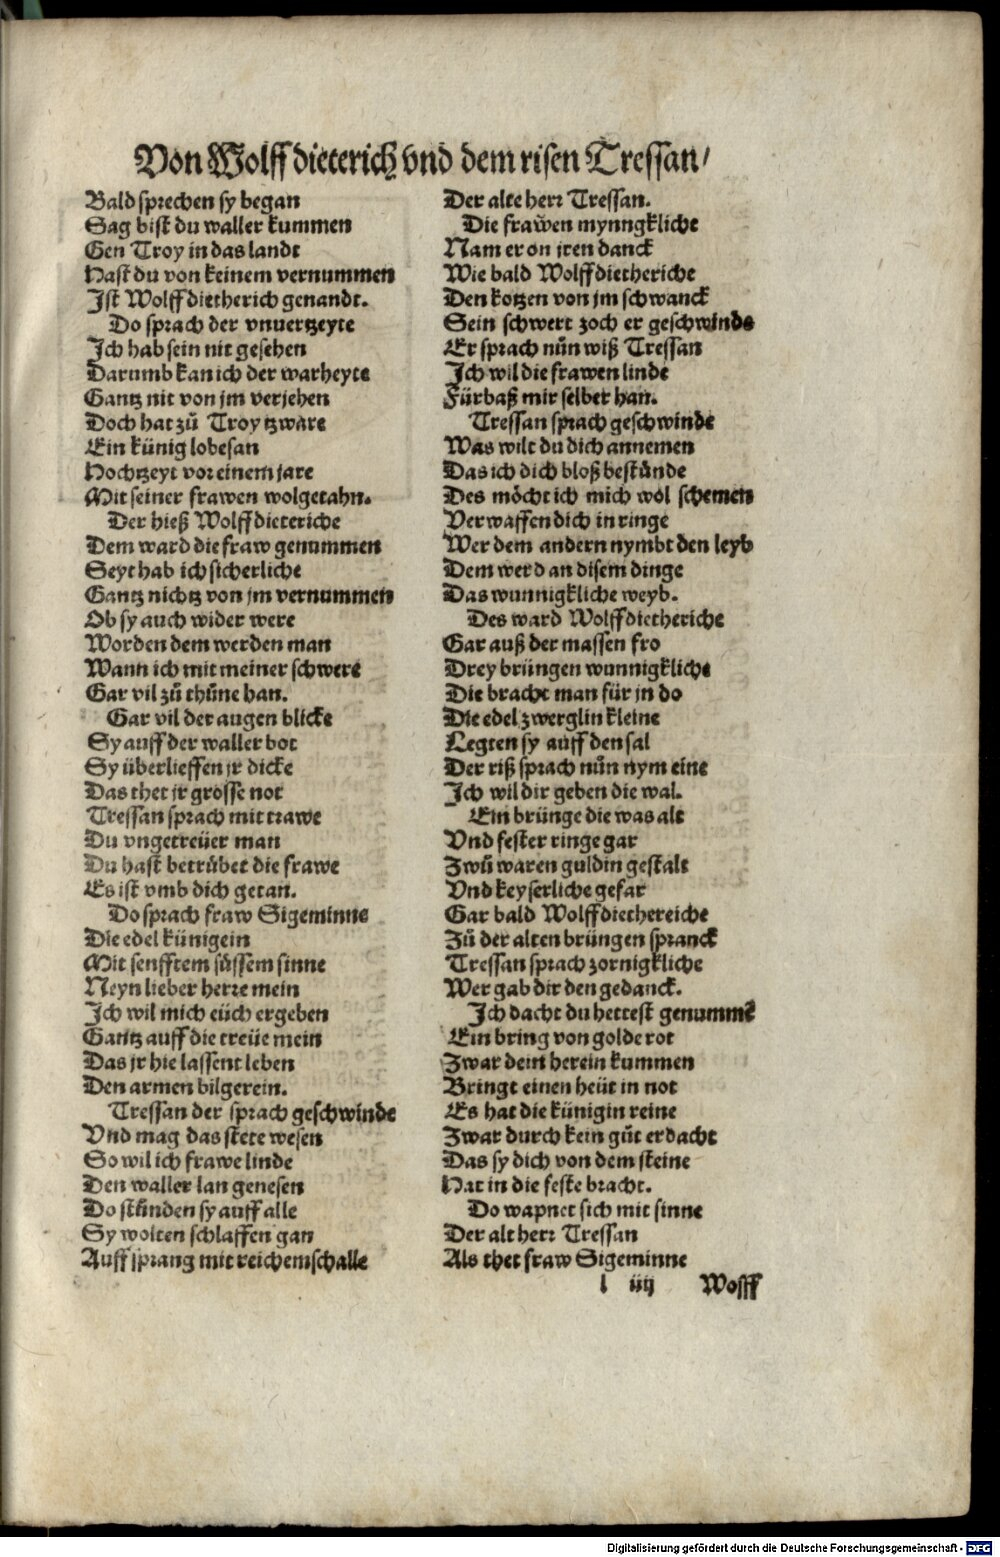 Von Wolff dieterich vnd dem risen Tressan/
Bald sprechen sy began
Sag bist du waller kummen
Gen Troy in das landt
Hast du von keinem vernummen
Ist Wolff dietherich genandt.
Do sprach der vnuertzeyte
Ich hab sein nit gesehen
Darumb kan ich der warheyte
Gantz nit von jm verjehen
Doch hat zů Troy tzware
Ein künig lobesan
Hochtzeyt vor einem jare
Mit seiner frawen wolgetahn.
Der hieß Wolff dieteriche
Dem ward die fraw genummen
Seyt hab ich sicherliche
Gantz nichtz von jm vernummen
Ob sy auch wider were
Worden dem werden man
Wann ich mit meiner schwere
Gar vil zů thůne han.
Gar vil der augen blicke
Sy auff der waller bot
Sy überlieffen jr dicke
Das thet jr grosse not
Tressan sprach mit trawe
Du vngetreüer man
Du hast betrůbet die frawe
Es ist vmb dich getan.
Do sprach fraw Sigeminne
Die edel künigein
Mit senfftem sůssem sinne
Neyn lieber herre mein
Ich wil mich eüch ergeben
Gantz auff die treüe mein
Das jr hie lassent leben
Den armen bilgerein.
Tressan der sprach geschwinde
Vnd mag das stete wesen
So wil ich frawe linde
Den waller lan genesen
Do stůnden sy auff alle
Sy wolten schlaffen gan
Auff sprang mit reichem schalle
Der alte herr Tressan.
Die frawen mynngkliche
Nam er on jren danck
Wie bald Wolff dietheriche
Den kotzen von jm schwanck
Sein schwert zoch er geschwinde
Er sprach nůn wiß Tressan
Ich wil die frawen linde
Fürbaß mir selber han.
Tressan sprach geschwinde
Was wilt du dich annemen
Das ich dich bloß bestůnde
Des möcht ich mich wol schemen
Verwaffen dich in ringe
Wer dem andern nymbt den leyb
Dem werd an disem dinge
Das wunnigkliche weyb.
Des ward Wolff dietheriche
Gar auß der massen fro
Drey brüngen wunnigkliche
Die bracht man für jn do
Die edel zwerglin kleine
Legten sy auff den sal
Der riß sprach nůn nym eine
Ich wil dir geben die wal.
Ein brünge die was alt
Vnd fester ringe gar
Zwů waren guldin gestalt
Vnd keyserliche gefar
Gar bald Wolff diethereiche
Zů der alten brüngen spranck
Tressan sprach zornigkliche
Wer gab dir den gedanck.
Ich dacht du hettest genummẽ
Ein bring von golde rot
Zwar dein herein kummen
Bringt einen heüt in not
Es hat die künigin reine
Zwar durch kein gůt erdacht
Das sy dich von dem steine
Hat in die feste bracht.
Do wapnet sich mit sinne
Der alt herr Tressan
Als thet fraw Sigeminne
l iiij Wosff
Digitalisierung gefördert durch die Deutsche Forschungsgemeinschaft - DFG